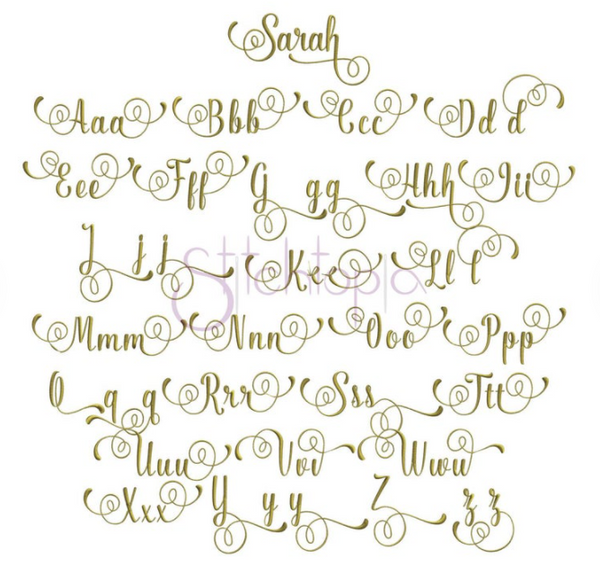 Sarah
Aaa Bbb Ccc Dd d
Eee Fff G gg Hhh Iii
J j j Kee Ll l
Stitchtopia
Mmm Nnn Ooo Ppp
Q q q Rrr Sss Ttt
Uuu Vvv Www
Xxx Y y y Z z z